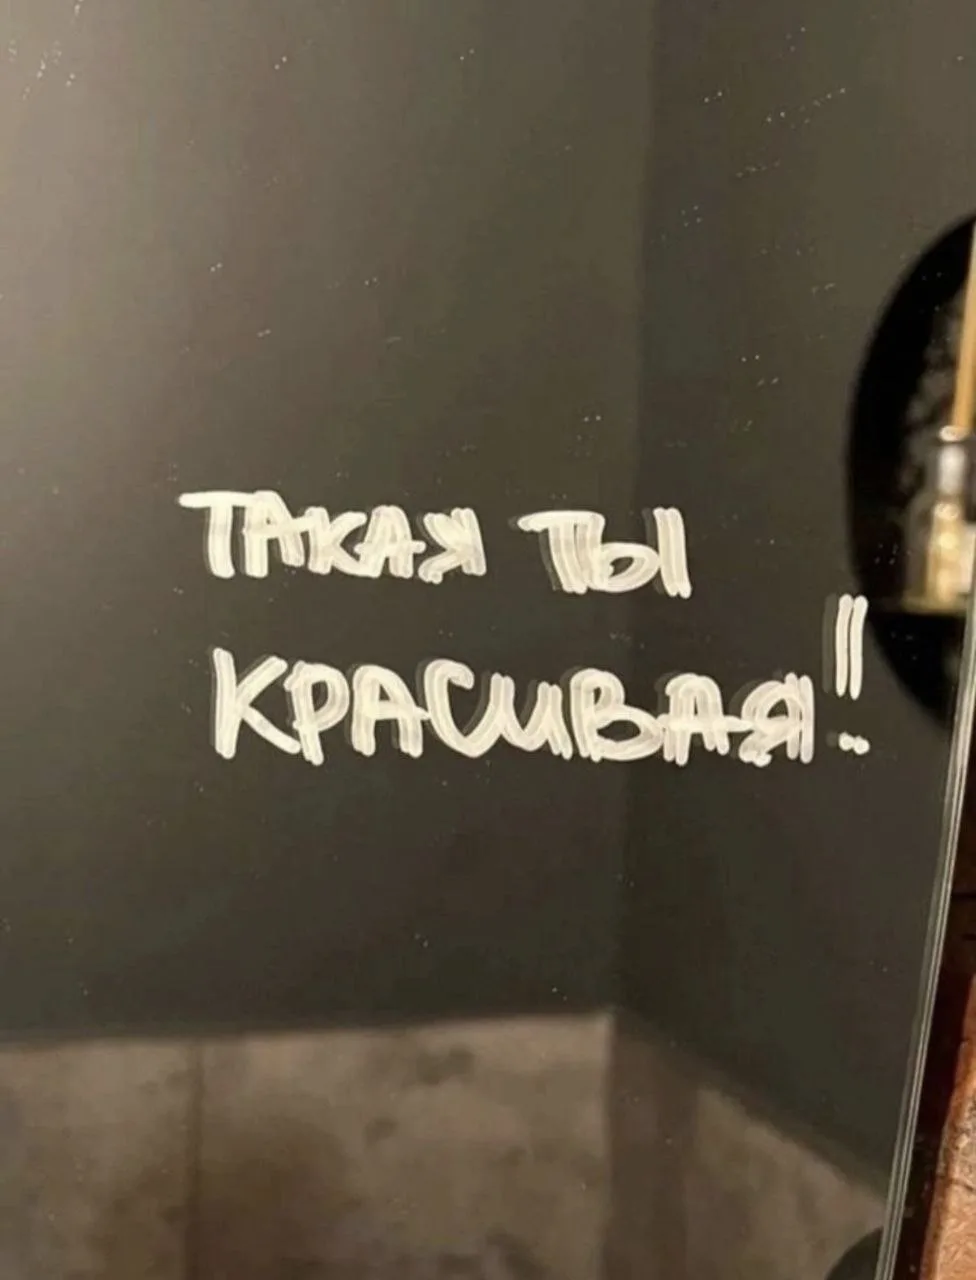 ТАКАЯ ТЫ
КРАСИВАЯ!!